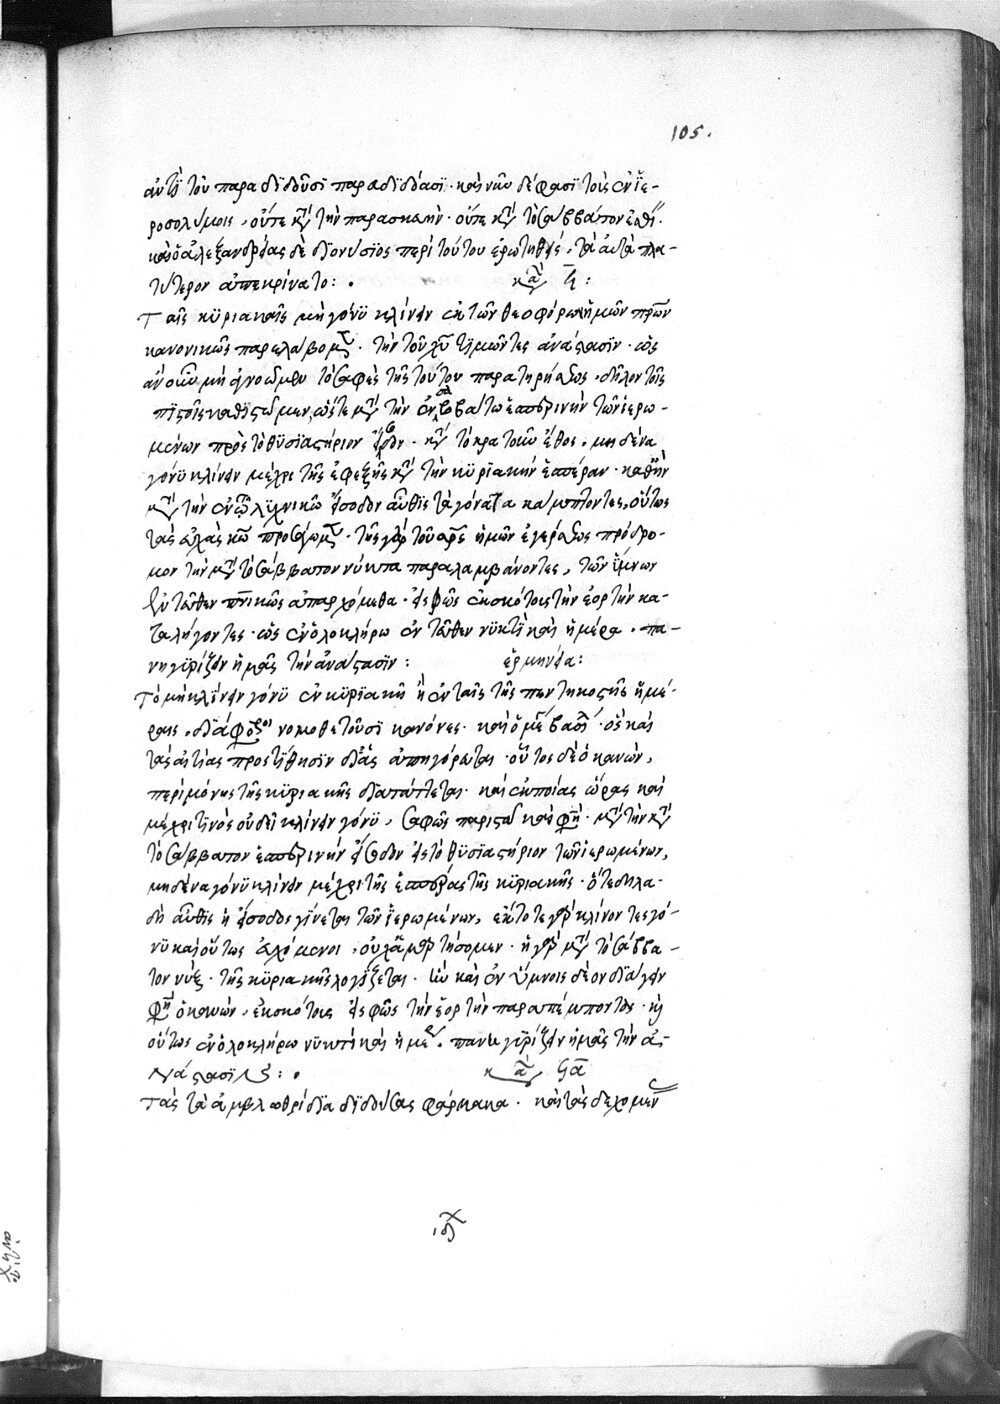 105.
ἀντὶ τοῦ παραδιδοῦσι παραδιδόασι· καὶ νῦν δέ φασι τοῖς ἐν ἱε-
ροσολύμοις, οὔτε κατὰ τὴν παρασκευὴν· οὔτε κατὰ τὸ σάββατον
καὶ ὁ ἀλεξανδρείας δὲ διονύσιος περὶ τούτου ἐρωτηθεὶς, τὰ αὐτὰ πλα-
τύτερον ἀπεκρίνατο: κα ϟ:
Ταῖς κυριακαῖς μὴ γόνυ κλίνειν ἐκ τῶν θεοφόρων ἡμῶν πρων
κανονικῶς παρελάβομεν· τὴν τοῦ χυ τιμῶντες ἀνάστασιν· ὡς
ἂν οὖν μὴ ἀγνοῶμεν τὸ σαφὲς τῆς τούτου παρατηρήσεως, δῆλον τοῖς
πιστοῖς καθιστῶμεν, ὥστε μετὰ τὴν ἐν σαββάτω ἑσπερινὴν τῶν ἱερω-
μένων πρὸς τὸ θυσιαστήριον εἴσοδον· κατὰ τὸ κρατοῦν ἔθος· μηδένα
γόνυ κλίνειν μέχρι τῆς ἐφεξῆς κατὰ τὴν κυριακὴν ἑσπέραν· καθ' ἣν
μετὰ τὴν ἐν τῶ λυχνικῶ εἴσοδον αὖθις τὰ γόνατα κάμπτοντες, οὕτως
τὰς εὐχὰς κω προσάγομεν· τῆς γὰρ τοῦ σρς ἡμῶν ἐγέρσεως πρόδρο-
μον τὴν μετὰ τὸ σάββατον νύκτα παραλαμβάνοντες, τῶν ὕμνων
ἐντεῦθεν πνικῶς ἀπαρχόμεθα· εἰς φῶς ἐκ σκότους τὴν ἑορτὴν κα-
ταλήγοντες· ὡς ἐν ὁλοκλήρω ἐντεῦθεν νυκτὶ καὶ ἡμέρα· πα-
νηγυρίζειν ἡμᾶς τὴν ἀνάστασιν: ἑρμηνεία:
Τὸ μὴ κλίνειν γόνυ ἐν κυριακῆ ἢ ἐν ταῖς τῆς πεντηκοστῆς ἡμέ-
ραις, διάφοροι νομοθετοῦσι κανόνες· καὶ ὁ μέγας βασίλειος· ὃς καὶ
τὰς αἰτίας προστίθησιν δι' ἃς ἀπηγόρευται· οὗτος δὲ ὁ κανὼν,
περὶ μόνης τῆς κυριακῆς διατάττεται· καὶ ἐκ ποίας ὥρας καὶ
μέχρι τίνος οὐ δεῖ κλίνειν γόνυ, σαφῶς παριστᾶ καὶ φησὶ· μετὰ τὴν κατὰ
τὸ σάββατον ἑσπερινὴν εἴσοδον εἰς τὸ θυσιαστήριον τῶν ἱερωμένων,
μηδένα γόνυ κλίνειν μέχρι τῆς ἑσπέρας τῆς κυριακῆς· ὅτε δηλα-
δὴ αὖθις ἡ εἴσοδος γίνεται τῶν ἱερωμένων, ἔκτοτε γὰρ κλίνοντες γό-
νυ καὶ οὕτως εὐχόμενοι, οὐχ ἁμαρτήσομεν· ἡ γὰρ μετὰ τὸ σάββα-
τον νὺξ· τῆς κυριακῆς λογίζεται· ἐν ὕμνοις δέον διάγειν
φησὶν ὁ κανὼν, ἐκ σκότους εἰς φῶς τὴν ἑορτὴν παραπέμποντας· καὶ
οὕτως ἐν ὁλοκλήρω νυκτὶ καὶ ἡμέρα· πανηγυρίζειν ἡμᾶς τὴν ἀ-
νάστασιν: κα ϟα
Τὰς τὰ ἀμβλωθρίδια διδούσας φάρμακα· καὶ τὰς δεχομέν